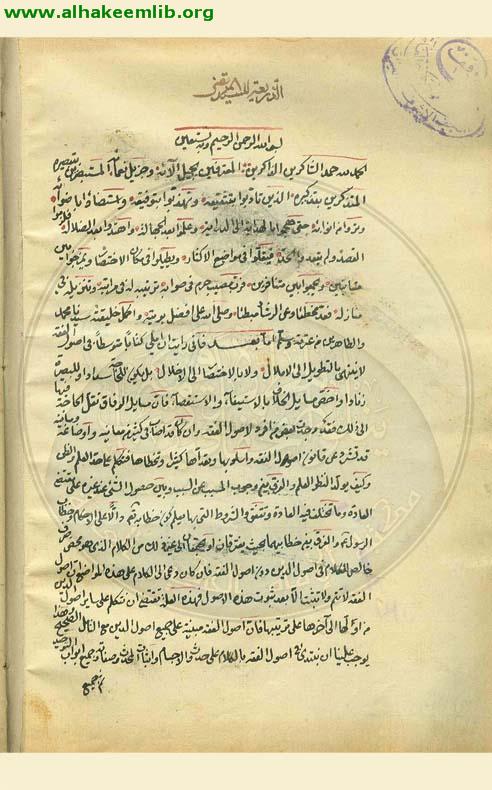 www.alhakeemlib.org
الذريعة للسيد المرتضى
بسم الله الرحمن الرحيم وبه نستعين
الحمد لله حمد الشاكرين الذاكرين المعترفين بجميل آلائه وجزيل نعمائه المستبصرين بتبصيره
المتذكرين بتذكيره الذين تأدبوا بتثقيفه وتهذبوا بتوفيقه واستضاءوا بأضوائه
وترووا من أنوائه حتى هجموا بالهداية إلى الدراية وعلموا بعد الجهالة واهتدوا بعد الضلالة
القصد ولم يتعدوا الحد فيقلوا في مواضع الإكثار ويطيلوا في مكان الاختصار ويمزجوا بين
متباينين ويجمعوا بين متنافرين
منازله
والطاهرين من عترته وسلم أما بعد فإني رأيت أن أملي كتابا متوسطا في أصول الفقه
لا ينتهي بالتطويل إلى الإملال ولا بالاختصار إلى الإخلال بل يكون للحاجة سدادا وللبصيرة
زنادا وأخص مسايل الخلاف بالاستيفاء والاستقصاء فإن مسايل الوفاق تقل الحاجة فيها
إلى ذلك فقد وجدت بعض من أفرد لأصول الفقه وإن كان قد أصاب في كثير من معانيه وأوضاعه ومبانيه
قد تشرد عن قانون أصول الفقه وأسلوبها وتعداها كثيرا وتخطاها فتكلم على حد العلم والظن
وكيف يولد النظر العلم والفرق بين وجوب المسبب عن السبب وبين حصول الشيء عند غيره على مقتضى
العادة وما تختلف فيه العادة وتتفق والشروط التي بها يعلم كون خطابه تعالى دالا على الأحكام وخطاب
الرسول والفرق بين خطابيهما بحيث يفترقان أو يجتمعان إلى غير ذلك من الكلام الذي هو محض صرف
خالص الكلام في أصول الدين دون أصول الفقه فإن كان دعى إلى الكلام على هذه المواضع أن أصول
الفقه لا تتم ولا تثبت إلا بعد ثبوت هذه الأصول فهذه العلة تقتضي أن نتكلم على ساير أصول الدين
من أولها إلى آخرها على ترتيبها فإن أصول الفقه مبنية على جميع أصول الدين مع التأمل الصحيح وهذا
يوجب علينا أن نبتدئ في أصول الفقه بالكلام على حدوث الأجسام وإثبات المحدث وصفاته وجميع أبواب التوحيد
ثم جميع